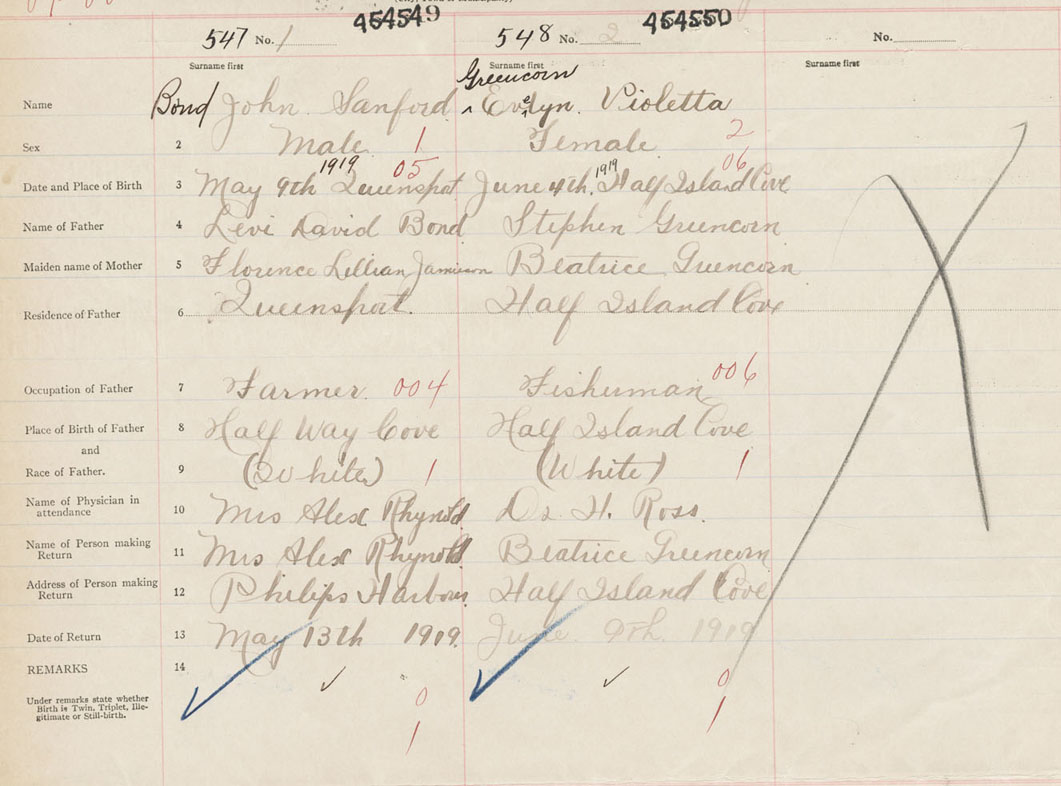 454549 454550
547 No. 1 548 No. 2 No.
Surname first Surname first Surname first
Greencorn
Name Bond John Sanford ^ Evelyn Violetta
Sex 2 Male 1 Female 2
1919 05 1919 06
Date and Place of Birth 3 May 9th Queensport June 4th. Half Island Cove
Name of Father 4 Levi David Bond Stephen Greencorn
Maiden name of Mother 5 Florence Lillian Jamieson Beatrice Greencorn
Residence of Father 6 Queensport. Half Island Cove
Occupation of Father 7 Farmer. 004 Fisherman 006
Place of Birth of Father 8 Half Way Cove Half Island Cove
and
Race of Father. 9 (White) 1 (White) 1
Name of Physician in
attendance 10 Mrs Alex Rhynold Dr. H. Ross.
Name of Person making
Return 11 Mrs Alex Rhynold Beatrice Greencorn
Address of Person making
Return 12 Philips Harbour Half Island Cove
Date of Return 13 May 13th 1919. June. 9th. 1919
REMARKS 14 ✓ ✓
Under remarks state whether 0 0
Birth is Twin, Triplet, Ille-
gitimate or Still-birth. 1 1